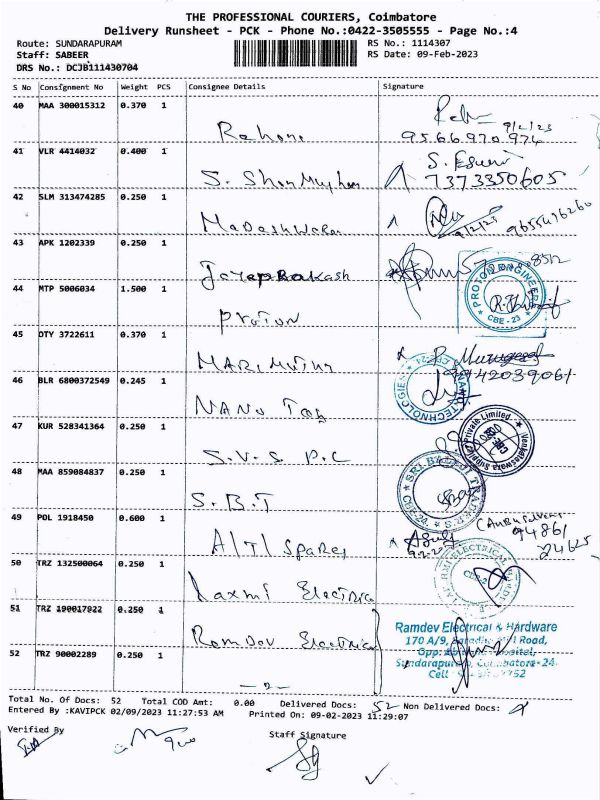 THE PROFESSIONAL COURIERS, Coimbatore
Delivery Runsheet - PCK - Phone No.:0422-3505555 - Page No.:4
Route: SUNDARAPURAM
Staff: SABEER
DRS No.: DCJB111430704
RS No.: 1114307
RS Date: 09-Feb-2023
S No Consignment No Weight PCS Consignee Details Signature
40 MAA 300015312 0.370 1
9/2/23
Rehone 95.66.970 974
41 VLR 4414032 0.400 1
S. Shanmugham 7373350605
42 SLM 313474285 0.250 1
Madeshwaran 9/2/23 9655476260
43 APK 1202339 0.250 1
Jayaprakash
44 MTP 5006034 1.500 1
PROTON ENGINEER
CBE - 23
Proton
45 OTY 3722611 0.370 1
P. Murugesh
Marimuthu 9842039061
46 BLR 6800372549 0.245 1
NANO TECHNOLOGIES
Nano Tag
47 KUR 528341364 0.250 1
Private Limited
S.V.S P.C
48 MAA 859084837 0.250 1
CBE-24
S.B.T
49 POL 1918450 0.600 1
94861
A/T/ Spares 24625
50 TRZ 132500064 0.250 1
ELECTRICAL
Laxmi Electrica
51 TRZ 190017922 0.250 1
Ramdev Electrica
52 TRZ 90002289 0.250 1
Ramdev Electrical & Hardware
170 A/9, Road,
Opp:
Sundarapuram, Coimbatore-24.
Cell
—2—
Total No. Of Docs: 52 Total COD Amt: 0.00 Delivered Docs: 52 Non Delivered Docs:
Entered By :KAVIPCK 02/09/2023 11:27:53 AM Printed On: 09-02-2023 11:29:07
Verified By
Staff Signature